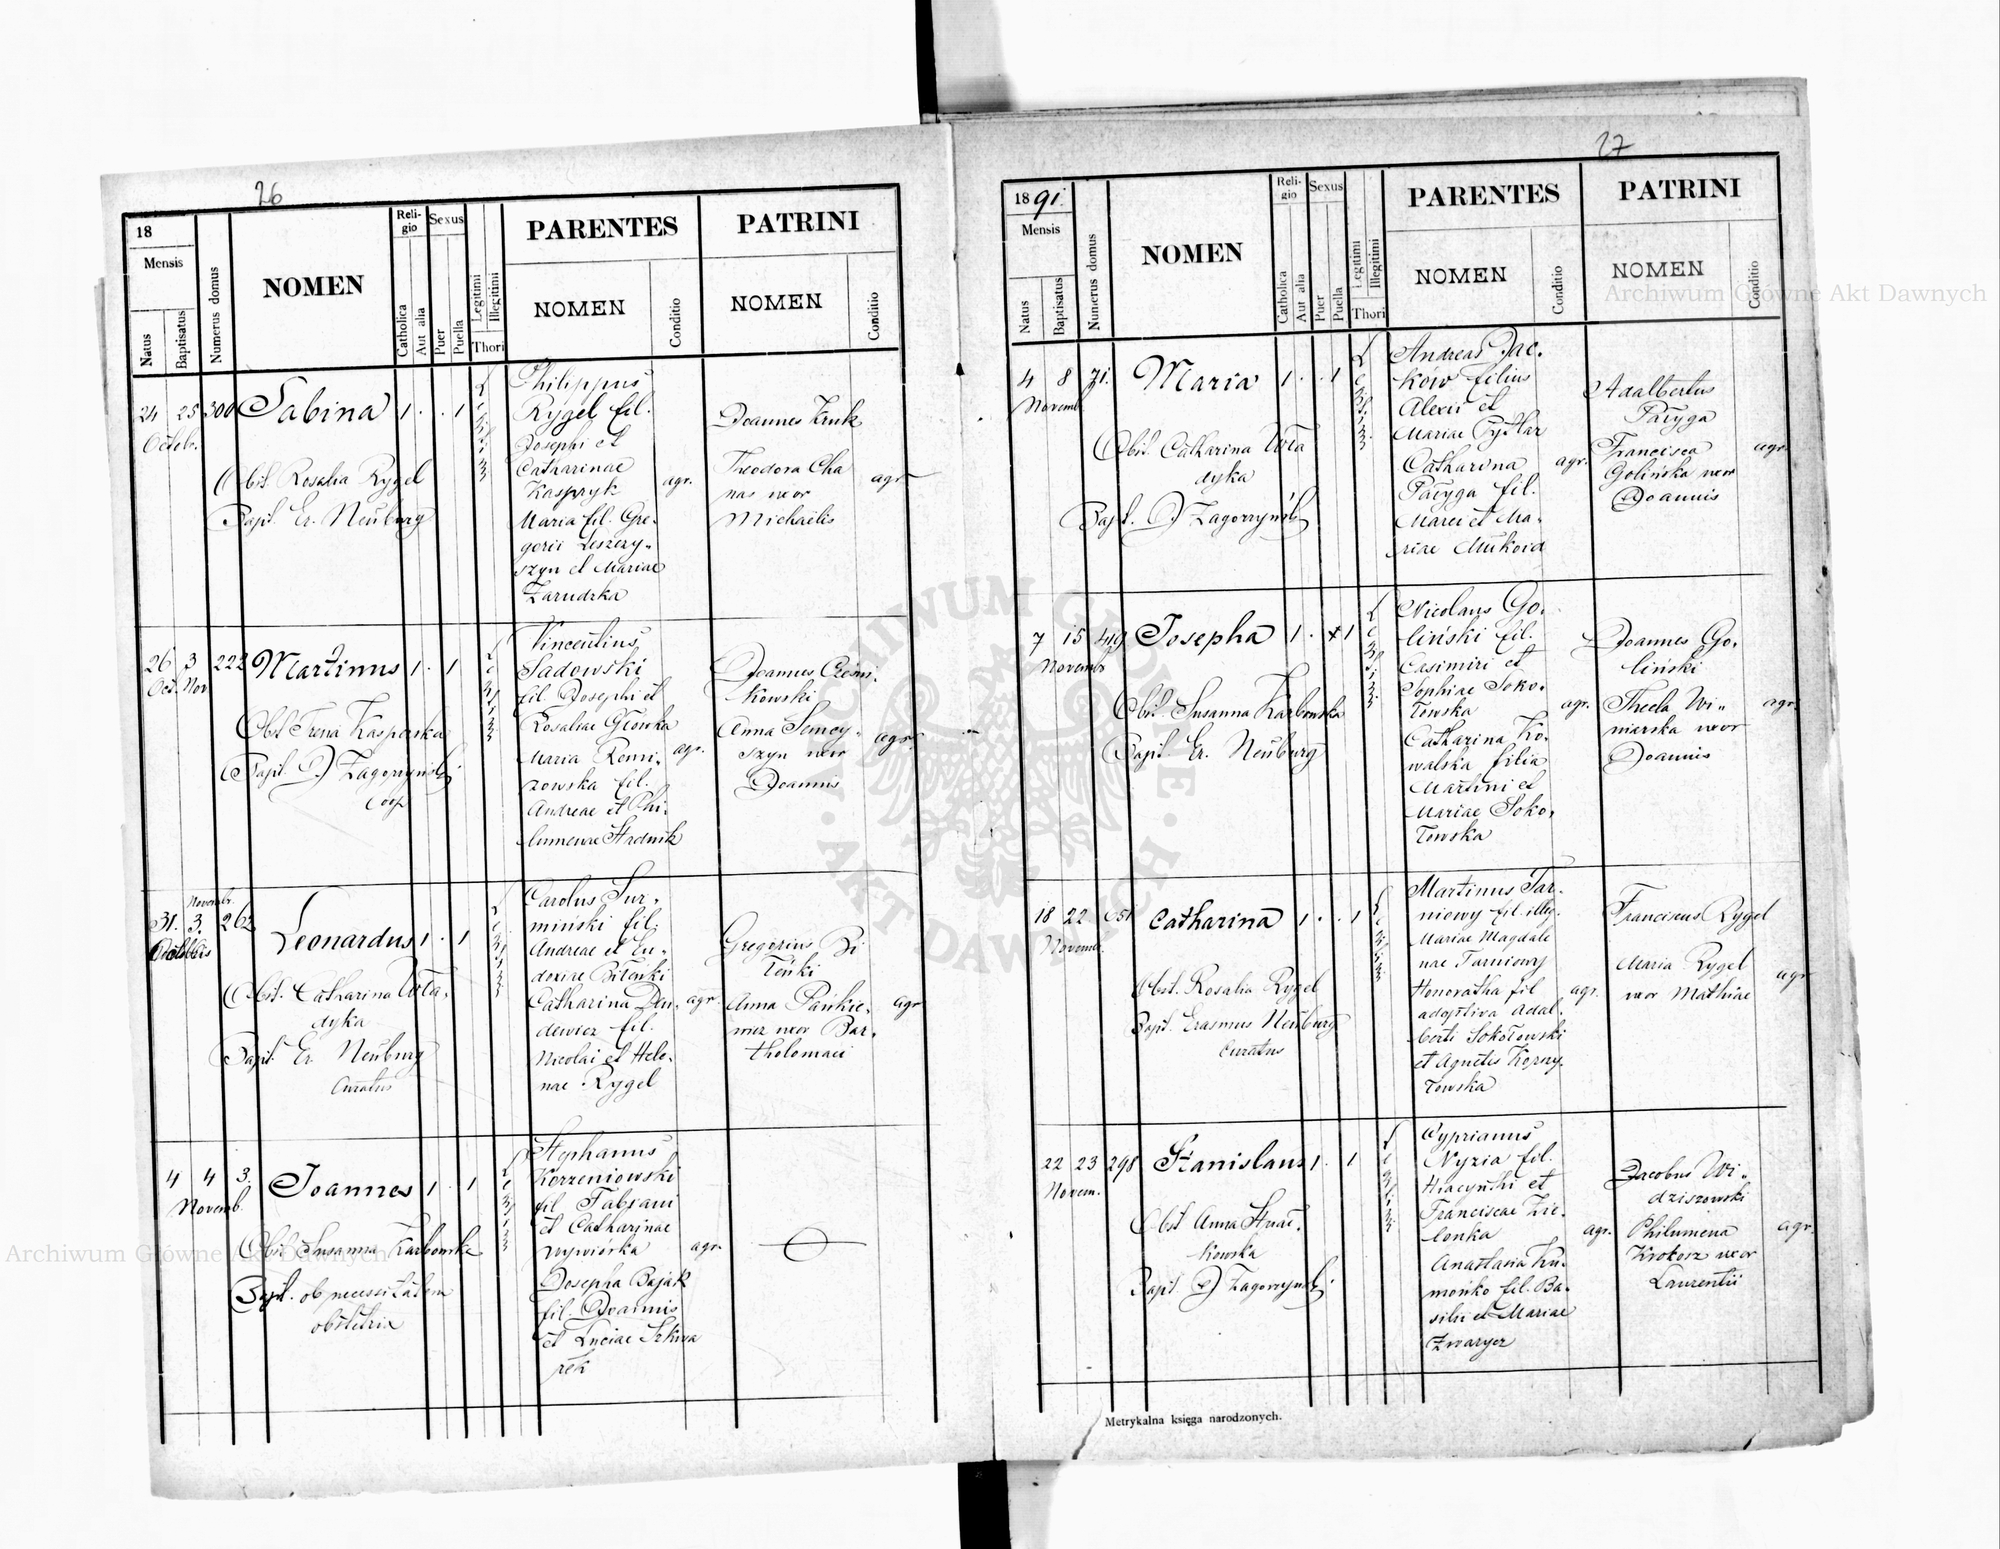 26
18
Mensis
Natus
Baptisatus
Numerus domus
NOMEN
Religio
Catholica
Aut alia
Sexus
Puer
Puella
Legitimi
Illegitimi
Thori
PARENTES
NOMEN
Conditio
PATRINI
NOMEN
Conditio
24 25 300 Sabina 1 . . 1
Octob.
Obst. Rosalia Rygel
Bapt. Er. Neuburg
Philippus
Rygel fil.
Josephi et
Catharinae
Kaspryk
Maria fil. Gre-
gorii Leszczy-
szyn et Mariae
Zarudzka
agr.
Joannes Kruk
Theodora Cha
nas uxor
Michaelis
agr.
26 3 222 Martinus 1 . 1
Oct. Nov
Obst. Irena Kasperska
Bapt. J Zagorzyński
coop
Vincentius
Sadowski
fil. Josephi et
Rosaliae Główka
Maria Remi-
zowska fil.
Andreae et Phi-
lumenae Hrodnik
agr.
Joannes
kowski
Anna
szyn uxor
Joannis
agr.
Novembr.
31. 3. 262 Leonardus 1 . 1
Octobris
Obst. Catharina Wła-
dyka
Bapt. Er. Neuburg
Curatus
Carolus Sur-
miński fil.
Andreae et Eu-
doxiae Bileński
Catharina Den-
dewicz fil.
Nicolai et Hele-
nae Rygel
agr.
Gregorius Bi
leński
Anna Pańkie-
wicz uxor Bar-
tholomaei
agr
4 4 3. Joannes 1 . 1
Novemb.
Obst. Susanna Karbowska
Bapt. ob necessitatem
obstetrix
Stephanus
Korzeniowski
fil Fabiani
et Catharinae
Wywiórka
Josepha Bajak
fil. Joannis
et Luciae Szkwa
rek
agr.
27
1891.
Mensis
Natus
Baptisatus
Numerus domus
NOMEN
Religio
Catholica
Aut alia
Sexus
Puer
Puella
Legitimi
Illegitimi
Thori
PARENTES
NOMEN
Conditio
PATRINI
NOMEN
Conditio
4 8 71. Maria 1 . . 1
Novemb.
Obst. Catharina Wła
dyka
Bapt. J Zagorzyński
Andreas Jac-
ków filius
Alexii et
Mariae Pytlar
Catharina
Pacyga fil.
Marci et Ma-
riae Mukoid
agr.
Adalbertus
Pacyga
Francisca
Golińska uxor
Joannis
agr.
7 15 419 Josepha 1 . x 1
Novemb
Obst. Susanna Karbowska
Bapt. Er. Neuburg
Nicolaus Go-
liński fil.
Casimiri et
Sophiae Soko-
łowska
Catharina Ko-
walska filia
Martini et
Mariae Soko-
łowska
agr.
Joannes Go-
liński
Thecla Wi-
niarska uxor
Joannis
agr.
18 22 651 Catharina 1 . . 1
Novemb.
Obst. Rosalia Rygel
Bapt. Erasmus Neuburg
Curatus
Martinus Tar-
niowy fil. illeg.
Mariae Magdale
nae Tarniowy
Honoratha fil
adoptiva Adal-
berti Sokołowski
et Agnetis Korny-
łowska
agr.
Franciscus Rygel
Maria Rygel
uxor Mathiae
agr
22 23 298 Stanislaus 1 . 1
Novem.
Obst Anna Struś-
kowska
Bapt. J Zagorzyński
Cyprianus
Nyzia fil.
Hiacynthi et
Franciscae Zie-
lonka
Anastasia Ku-
mońko fil. Ba-
silii et Mariae
Zwarycz
agr.
Jacobus Wi-
dziszowski
Philumena
Krokosz uxor
Laurentii
agr.
Metrykalna księga narodzonych.
Archiwum Główne Akt Dawnych
Archiwum Główne Akt Dawnych
ARCHIWUM GŁÓWNE · AKT DAWNYCH ·